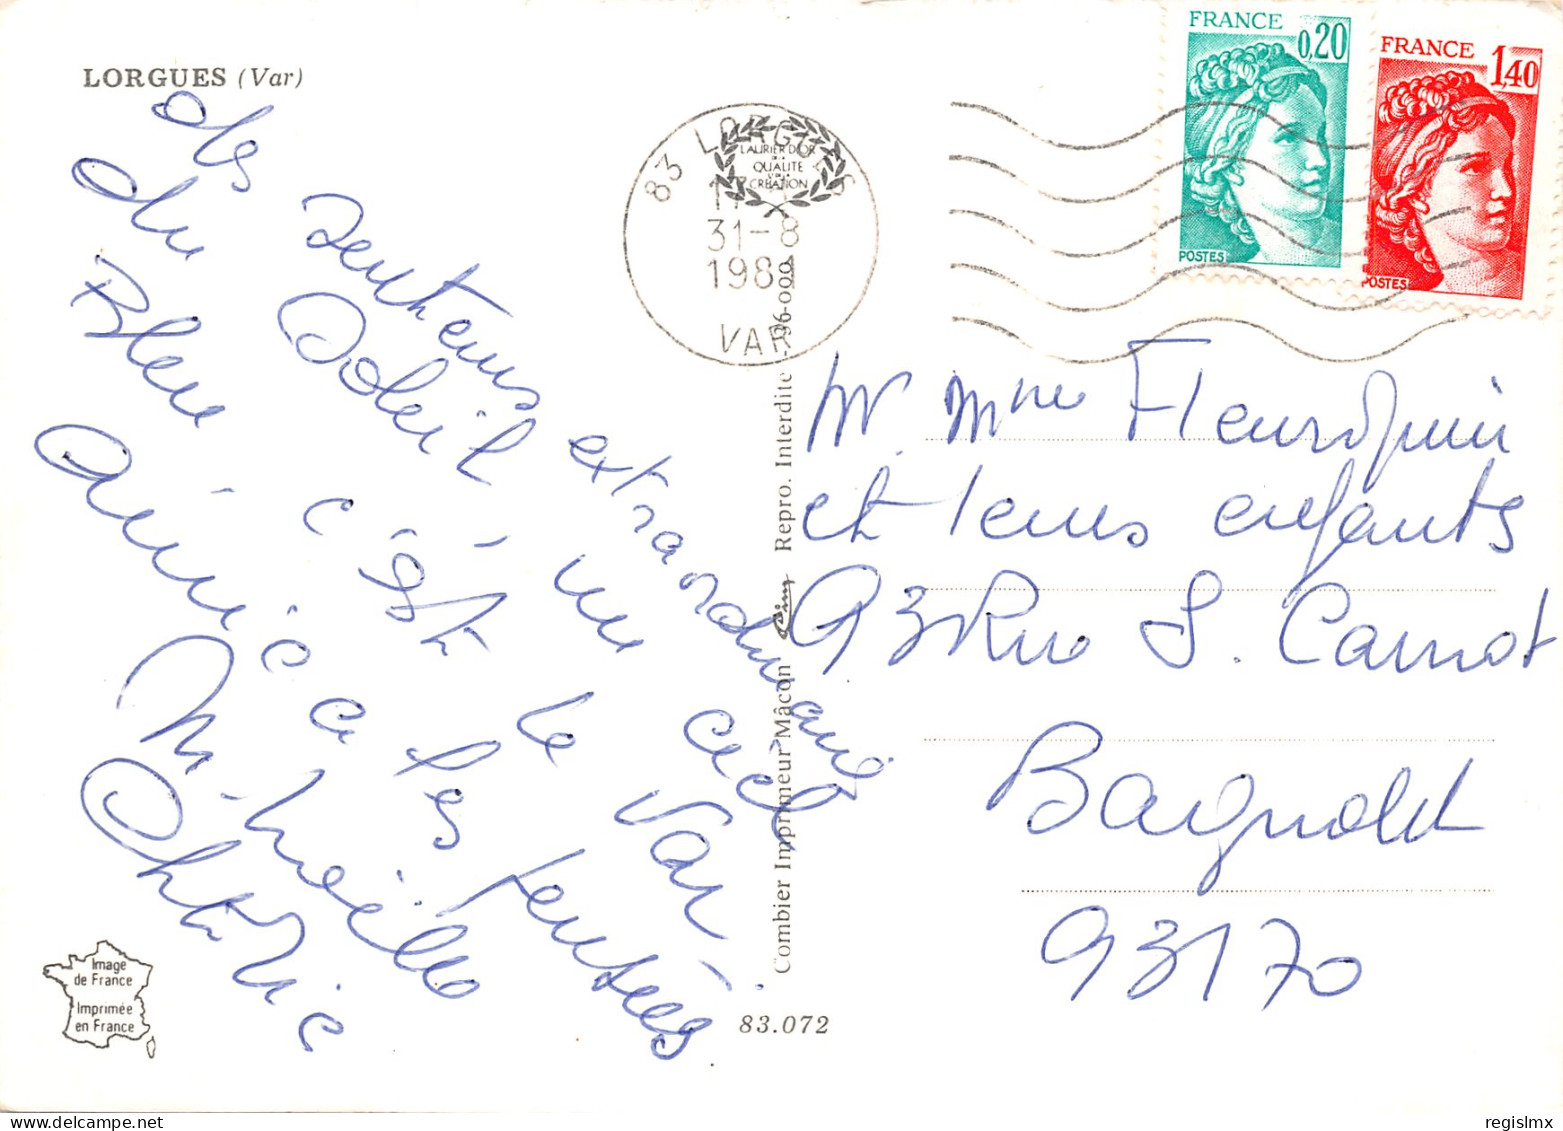 LORGUES (Var)
des senteurs extraordinaire
du Soleil, un ciel
Bleu c'est le Var.
Amicales pensées
Mireille
83 LORGUES
17
31-8
1981
VAR
LAURIER D'OR
DE LA
QUALITE
DE LA
CREATION
FRANCE
0,20
POSTES
FRANCE
1,40
POSTES
Mr. Mme Fleurquin
et leurs enfants
93 Rue S. Carnot
Bagnolet
93170
Combier Imprimeur Mâcon Cim Repro. Interdite - 96-000
Image
de France
Imprimée
en France
83.072
regislmx